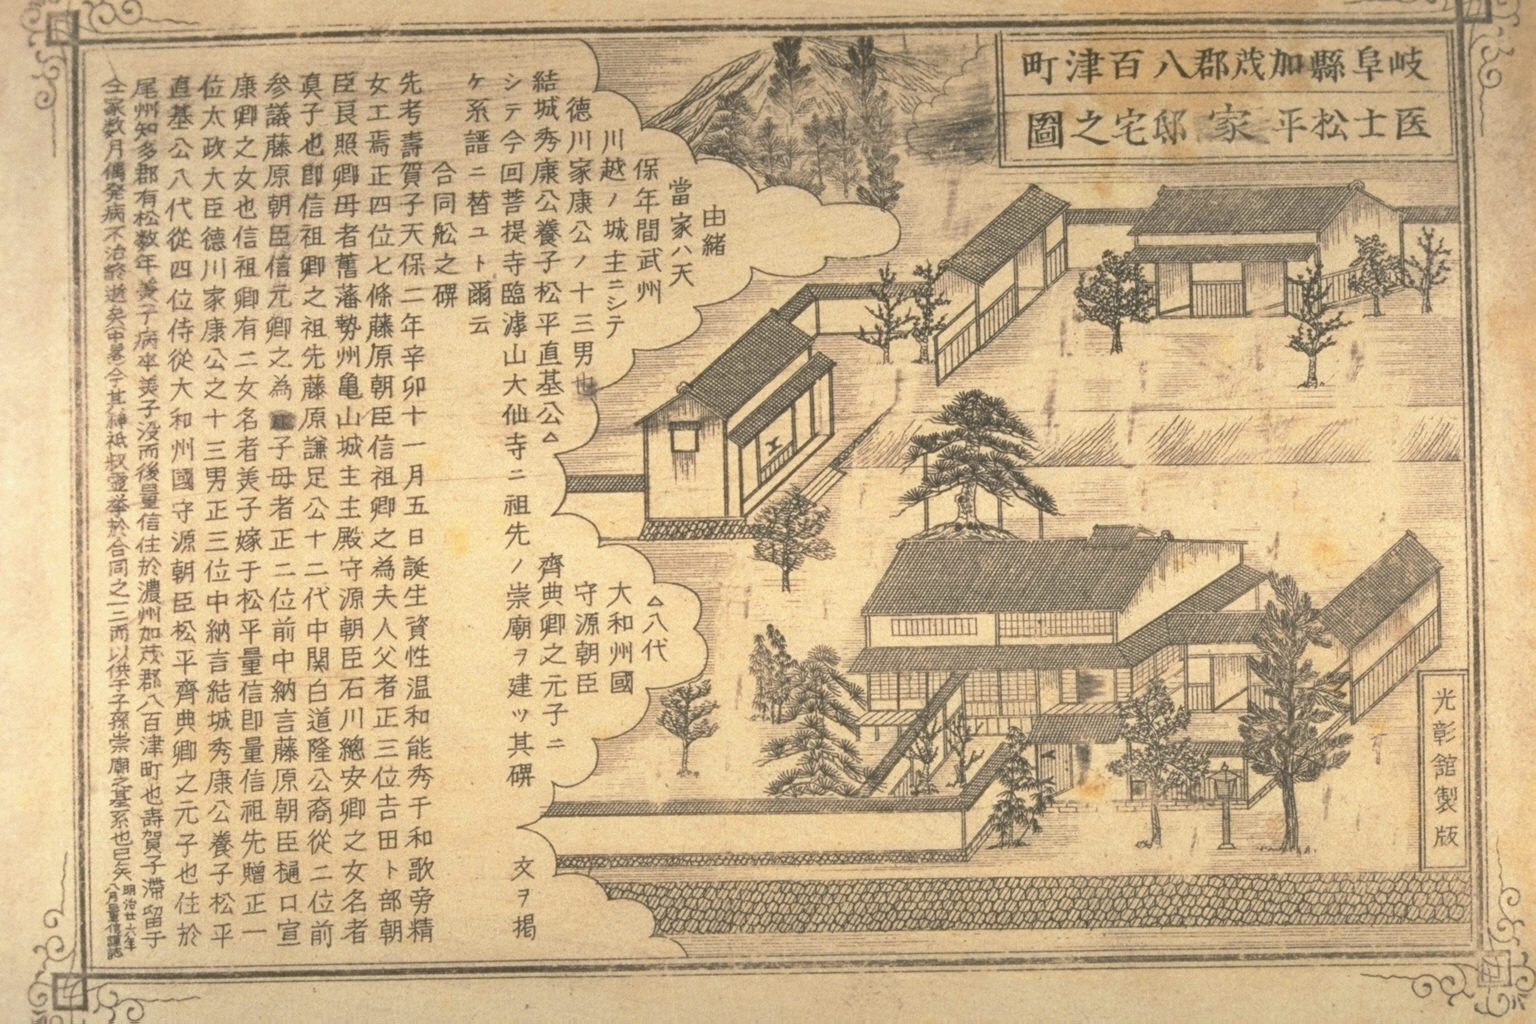 岐阜縣加茂郡八百津町
医士松平家邸宅之圖
由緒
當家ハ天
保年間武州
川越ノ城主ニシテ
徳川家康公ノ十三男也
結城秀康公養子松平直基公△
△八代
大和州國
守源朝臣
齊典卿之元子ニ
シテ今回菩提寺臨滹山大仙寺ニ祖先ノ崇廟ヲ建ッ其碑
文ヲ掲
ケ系譜ニ替ユト爾云
合同舩之碑
先考壽賀子天保二年辛卯十一月五日誕生資性温和能秀于和歌旁精
女工焉正四位七條藤原朝臣信祖卿之為夫人父者正三位吉田卜部朝
臣良照卿母者舊藩勢州亀山城主主殿守源朝臣石川總安卿之女名者
真子也即信祖卿之祖先藤原謙足公十二代中関白道隆公裔從二位前
参議藤原朝臣信元卿之為子母者正二位前中納言藤原朝臣樋口宣
康卿之女也信祖卿有二女名者美子嫁于松平量信即量信祖先贈正一
位太政大臣德川家康公之十三男正三位中納言結城秀康公養子松平
直基公八代從四位侍從大和州國守源朝臣松平齊典卿之元子也住於
尾州知多郡有松数年美子病卒美子没而後量信住於濃州加茂郡八百津町也壽賀子滞留于
仝家数月偶発病不治終逝矣中畧今其神祇叔霊挙於合同之二三而以供于子孫崇廟之基系也已矣
明治廿六年
八月量信謹誌
光彰舘製版